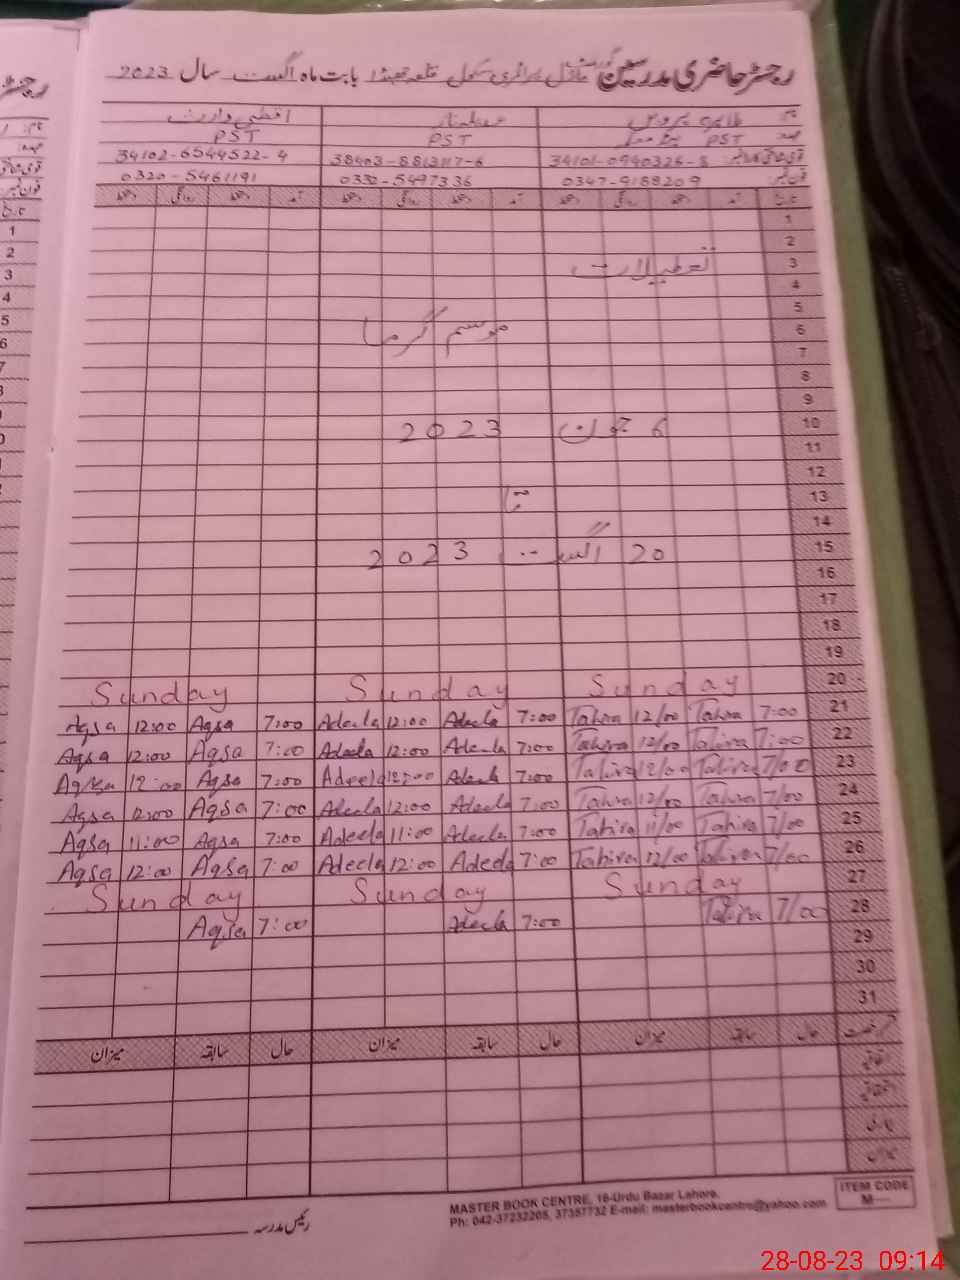 رجسٹر حاضری مدرسین گورنمنٹ ماڈل پرائمری سکول قلعہ جھنڈا بابت ماہ اگست سال 2023
نام طاہرہ پروین عدیلہ ناز اقصٰی وارث
عہدہ PST ہیڈ ٹیچر PST PST
34101-0940326-8 38403-8813117-6 34102-6544522-4
فون نمبر 0347-9188209 0332-5497336 0320-5461191
تاریخ آمد دستخط روانگی دستخط آمد دستخط روانگی دستخط آمد دستخط روانگی دستخط
1
2
3 تعطیلات
4
5
6 موسم گرما
7
8
9
10 6 جون 2023
11
12
13 تا
14
15 20 اگست 2023
16
17
18
19
20 Sunday Sunday Sunday
Aqsa 12:00 Aqsa 7:00 Adeela 12:00 Adeela 7:00 Tahira 12/00 Tahira 7:00 21
Aqsa 12:00 Aqsa 7:00 Adeela 12:00 Adeela 7:00 Tahira 12/00 Tahira 7:00 22
Aqsa 12:00 Aqsa 7:00 Adeela 12:00 Adeela 7:00 Tahira 12/00 Tahira 7/00 23
Aqsa 12:00 Aqsa 7:00 Adeela 12:00 Adeela 7:00 Tahira 12/00 Tahira 7/00 24
Aqsa 11:00 Aqsa 7:00 Adeela 11:00 Adeela 7:00 Tahira 11/00 Tahira 7/00 25
Aqsa 12:00 Aqsa 7:00 Adeela 12:00 Adeela 7:00 Tahira 12/00 Tahira 7/00 26
Sunday Sunday Sunday 27
Aqsa 7:00 Adeela 7:00 Tahira 7/00 28
29
30
31
حال سابقہ میزان حال سابقہ میزان حال سابقہ میزان
اتفاقیہ
استحقاقیہ
بیماری
میزان
رئیس مدرسہ
MASTER BOOK CENTRE, 16-Urdu Bazar Lahore.
Ph: 042-37232205, 37357732 E-mail: masterbookcentre@yahoo.com
ITEM CODE
M-
28-08-23 09:14